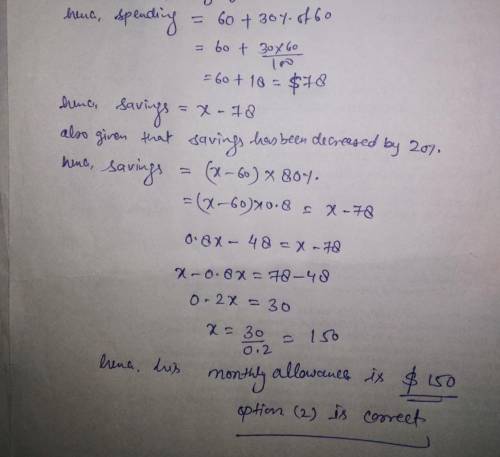 henc, spending = 60 + 30% of 60
= 60 + 30×60/100
= 60 + 18 = $78
henc, savings = x - 78
also given that savings has been decreased by 20%.
henc, savings = (x-60) × 80%.
= (x-60)×0.8 = x-78
0.8x - 48 = x-78
x-0.8x = 78-48
0.2x = 30
x = 30/0.2 = 150
henc, his monthly allowance is $150
option (2) is correct